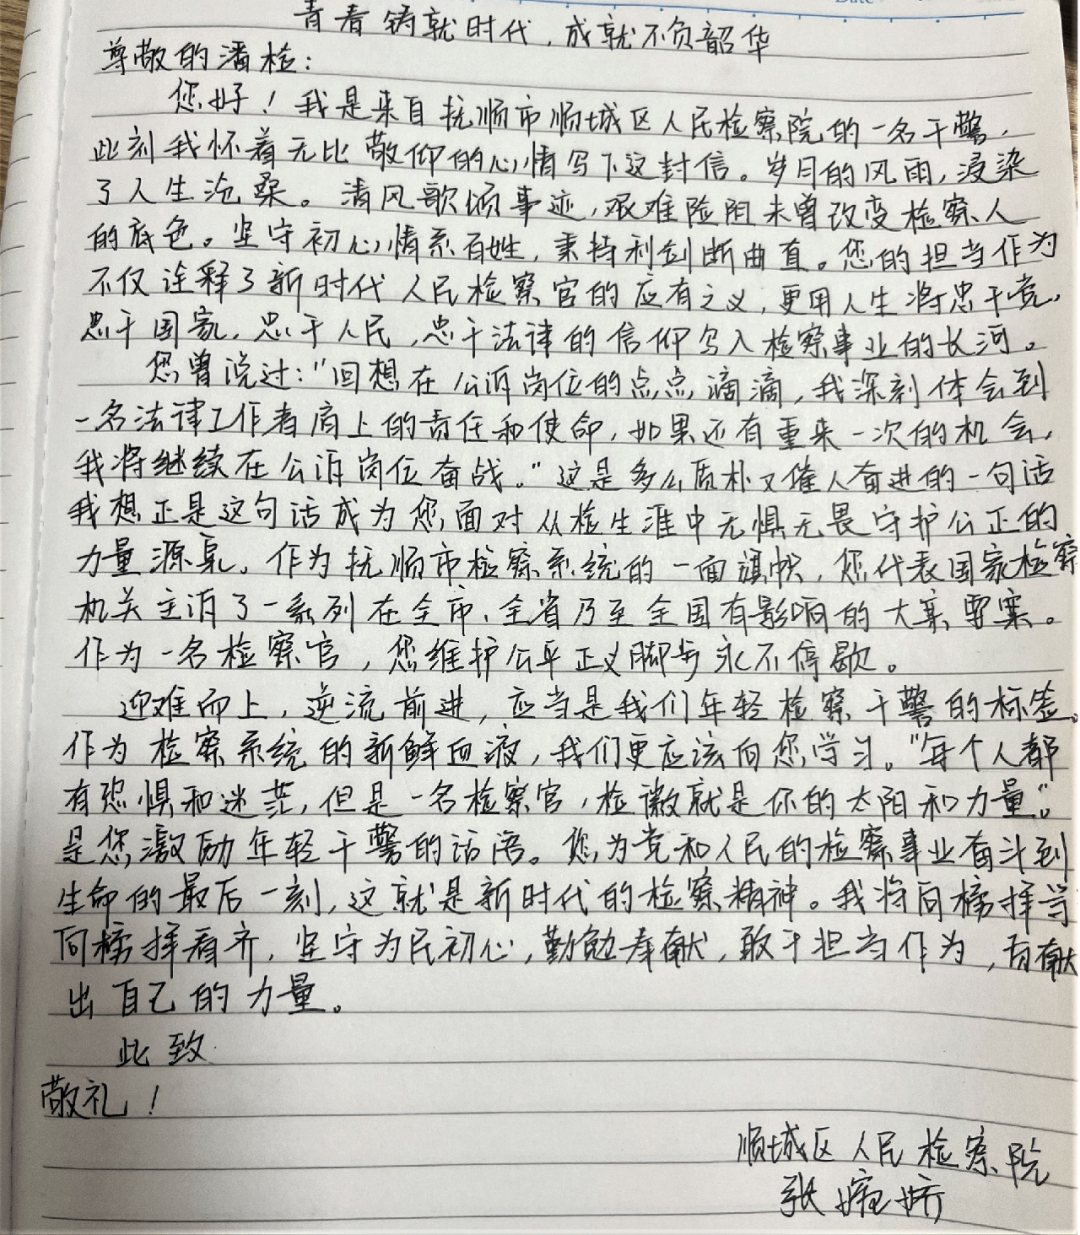 青春铸就时代，成就不负韶华
尊敬的潘检：
您好！我是来自抚顺市顺城区人民检察院的一名干警，
此刻我怀着无比敬仰的心情写下这封信。岁月的风雨，浸染
了人生沧桑。清风歌颂事迹，艰难险阻未曾改变检察人
的底色。坚守初心情系百姓，秉持利剑断曲直。您的担当作为
不仅诠释了新时代人民检察官的应有之义，更用人生将忠于党，
忠于国家，忠于人民，忠于法律的信仰写入检察事业的长河。
您曾说过：“回想在公诉岗位的点点滴滴，我深刻体会到
一名法律工作者肩上的责任和使命，如果还有重来一次的机会，
我将继续在公诉岗位奋战。”这是多么质朴又催人奋进的一句话
我想正是这句话成为您面对从检生涯中无惧无畏守护公正的
力量源泉。作为抚顺市检察系统的一面旗帜，您代表国家检察
机关主诉了一系列在全市、全省乃至全国有影响的大案要案。
作为一名检察官，您维护公平正义脚步永不停歇。
迎难而上，逆流前进，应当是我们年轻检察干警的标签。
作为检察系统的新鲜血液，我们更应该向您学习。“每个人都
有恐惧和迷茫，但是一名检察官，检徽就是你的太阳和力量”。
是您激励年轻干警的话语。您为党和人民的检察事业奋斗到
生命的最后一刻，这就是新时代的检察精神。我将向榜样学
向榜样看齐，坚守为民初心，勤勉奉献，敢于担当作为，贡献
出自己的力量。
此致
敬礼！
顺城区人民检察院
张婠娇